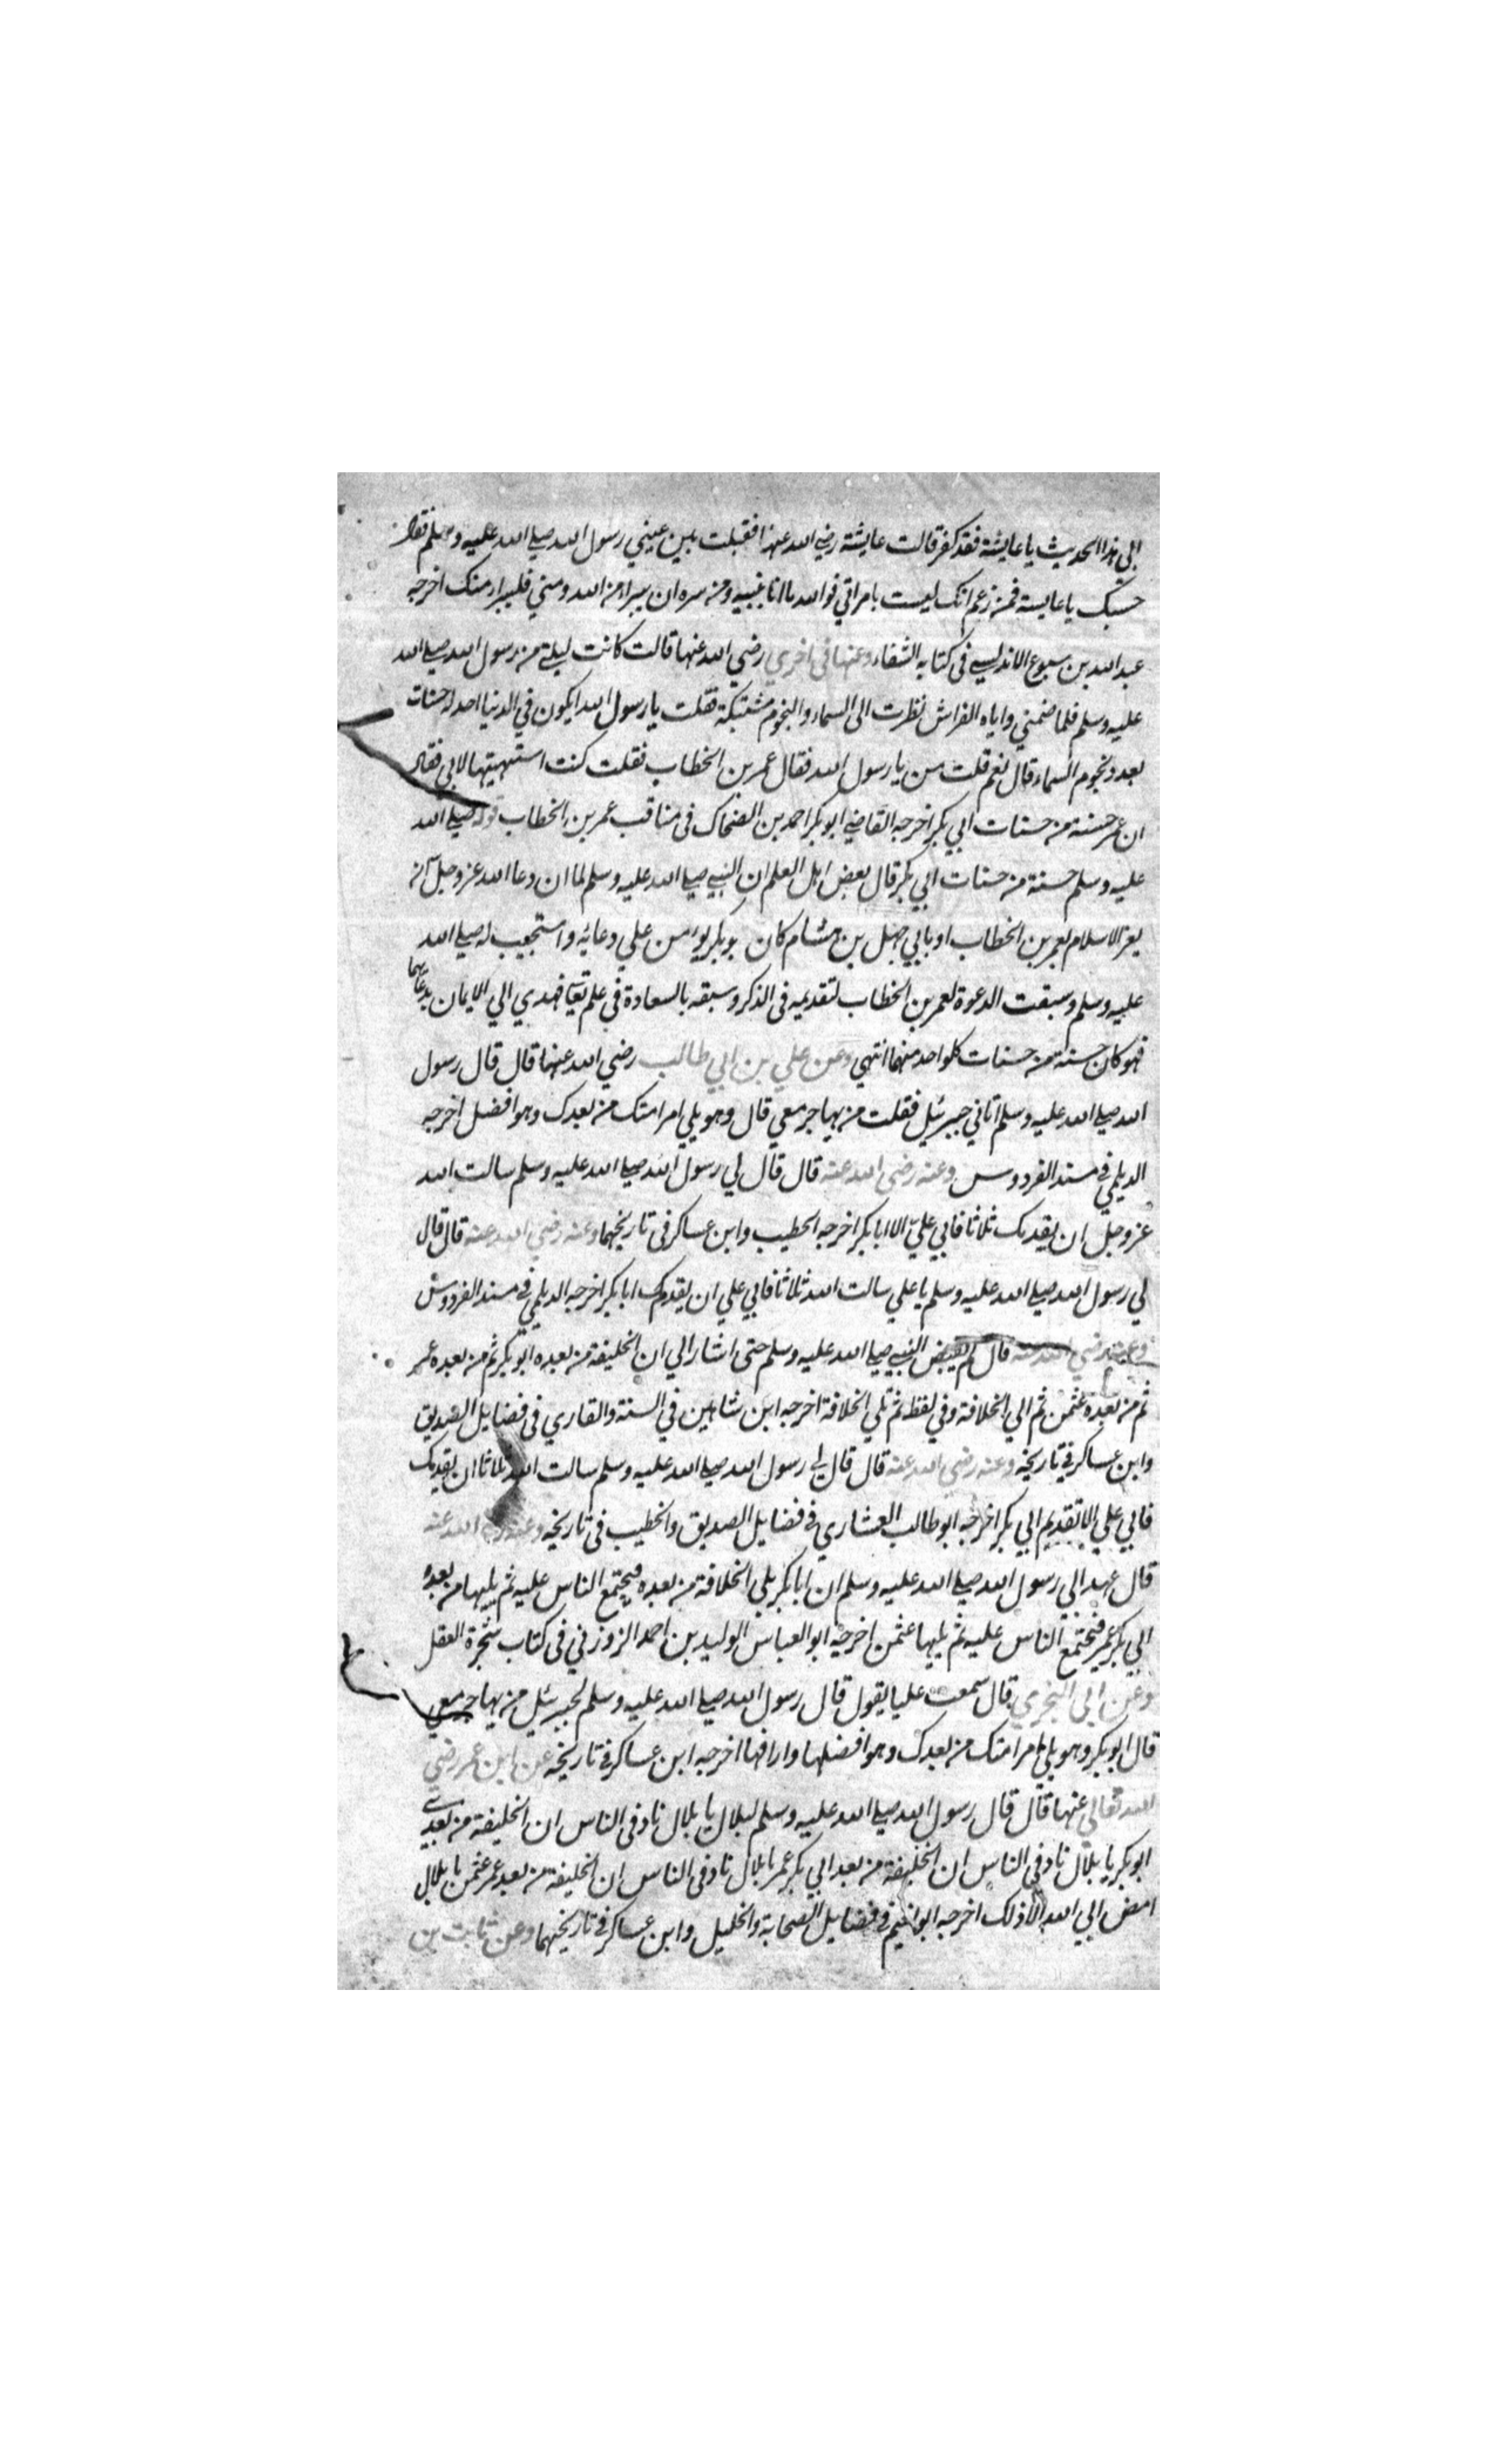 الي هذا الحديث يا عايشة فقد كفر قالت عايشة رضي الله عنها فقبلت بين عيني رسول الله صلي الله عليه وسلم فقال
حسبك يا عايشة فمن زعم انك ليست بامراتي فوالله ما انا بنبيه ومن سره ان يبرا من الله ومني فليبرا منك اخرجه
عبد الله بن سبوع الاندلسي في كتابه الشفاء وعنها في اخري رضي الله عنها قالت كانت ليلتي من رسول الله صلي الله
عليه وسلم فلما ضمني واياه الفراش نظرت الى السماء والنجوم مشتبكة فقلت يا رسول الله ايكون في الدنيا احد له حسنات
بعدد نجوم السماء قال نعم قلت من يا رسول الله فقال عمر بن الخطاب فقلت كنت استهيتها لابي فقال
ان عمر حسنة من حسنات ابي بكر اخرجه القاضي ابو بكر احمد بن الضحاك في مناقب عمر بن الخطاب قوله صلي الله
عليه وسلم حسنة من حسنات ابي بكر قال بعض اهل العلم ان النبي صلي الله عليه وسلم لما ان دعا الله عز وجل انه
يعز الاسلام بعمر بن الخطاب او بابي جهل بن هشام كان بو بكر يومن علي دعائه واستجيب له صلي الله
عليه وسلم وسبقت الدعوة لعمر بن الخطاب لتقديمه في الذكر وسبقه بالسعادة في علم تعا فهدي الي الايمان بدعائهما
فهو كان حسنة من حسنات كلواحد منهما انتهي وعن علي بن ابي طالب رضي الله عنهما قال قال رسول
الله صلي الله عليه وسلم اتاني جبرئيل فقلت من يهاجر معي قال وهو يلي امر امتك من بعدك وهو افضل اخرجه
الديلمي في مسند الفردوس وعنه رضي الله عنه قال قال لي رسول الله صلي الله عليه وسلم سالت الله
عز وجل ان يقدمك ثلاثا فابي عليّ الا ابا بكر اخرجه الخطيب وابن عساكر في تاريخهما وعنه رضي الله عنه قال قال
لي رسول الله صلي الله عليه وسلم يا علي سالت الله ثلاثا فابي علي ان يقدم ابا بكر اخرجه الديلمي في مسند الفردوس
وعنه رضي الله عنه قال لم يقبض النبي صلي الله عليه وسلم حتى اشار الي ان الخليفة من بعده ابو بكر ثم من بعده عمر
ثم من بعده عثمن ثم الي الخلافة وفي لفظ ثم تلي الخلافة اخرجه ابن شاهين في السنة والقاري في فضايل الصديق
وابن عساكر في تاريخه وعنه رضي الله عنه قال قال لي رسول الله صلي الله عليه وسلم سالت الله ثلاثا ان يقدمك
فابي علي الا تقديم ابي بكر اخرجه ابو طالب العشاري في فضايل الصديق والخطيب في تاريخه وعنه رضي الله عنه
قال عهد الي رسول الله صلي الله عليه وسلم ان ابا بكر يلي الخلافة من بعده فيجتمع الناس عليه ثم يليها من بعده
ابي بكر عمر فيجتمع الناس عليه ثم يليها عثمن اخرجه ابو العباس الوليد بن احمد الزوزني في كتاب شجرة العقل
وعن ابي البختري قال سمعت عليا يقول قال رسول الله صلي الله عليه وسلم لجبرئيل من يهاجر معي
قال ابو بكر وهو يلي امر امتك من بعدك وهو افضلها وارافها اخرجه ابن عساكر في تاريخه عن ابن عمر رضي
الله تعالي عنهما قال قال رسول الله صلي الله عليه وسلم لبلال يا بلال ناد في الناس ان الخليفة من بعدي
ابو بكر يا بلال ناد في الناس ان الخليفة من بعد ابي بكر عمر يا بلال ناد في الناس ان الخليفة من بعد عمر عثمن يا بلال
امض ابي الله الا ذلك اخرجه ابو نعيم في فضايل الصحابة والخليل وابن عساكر في تاريخهما وعن ثابت بن